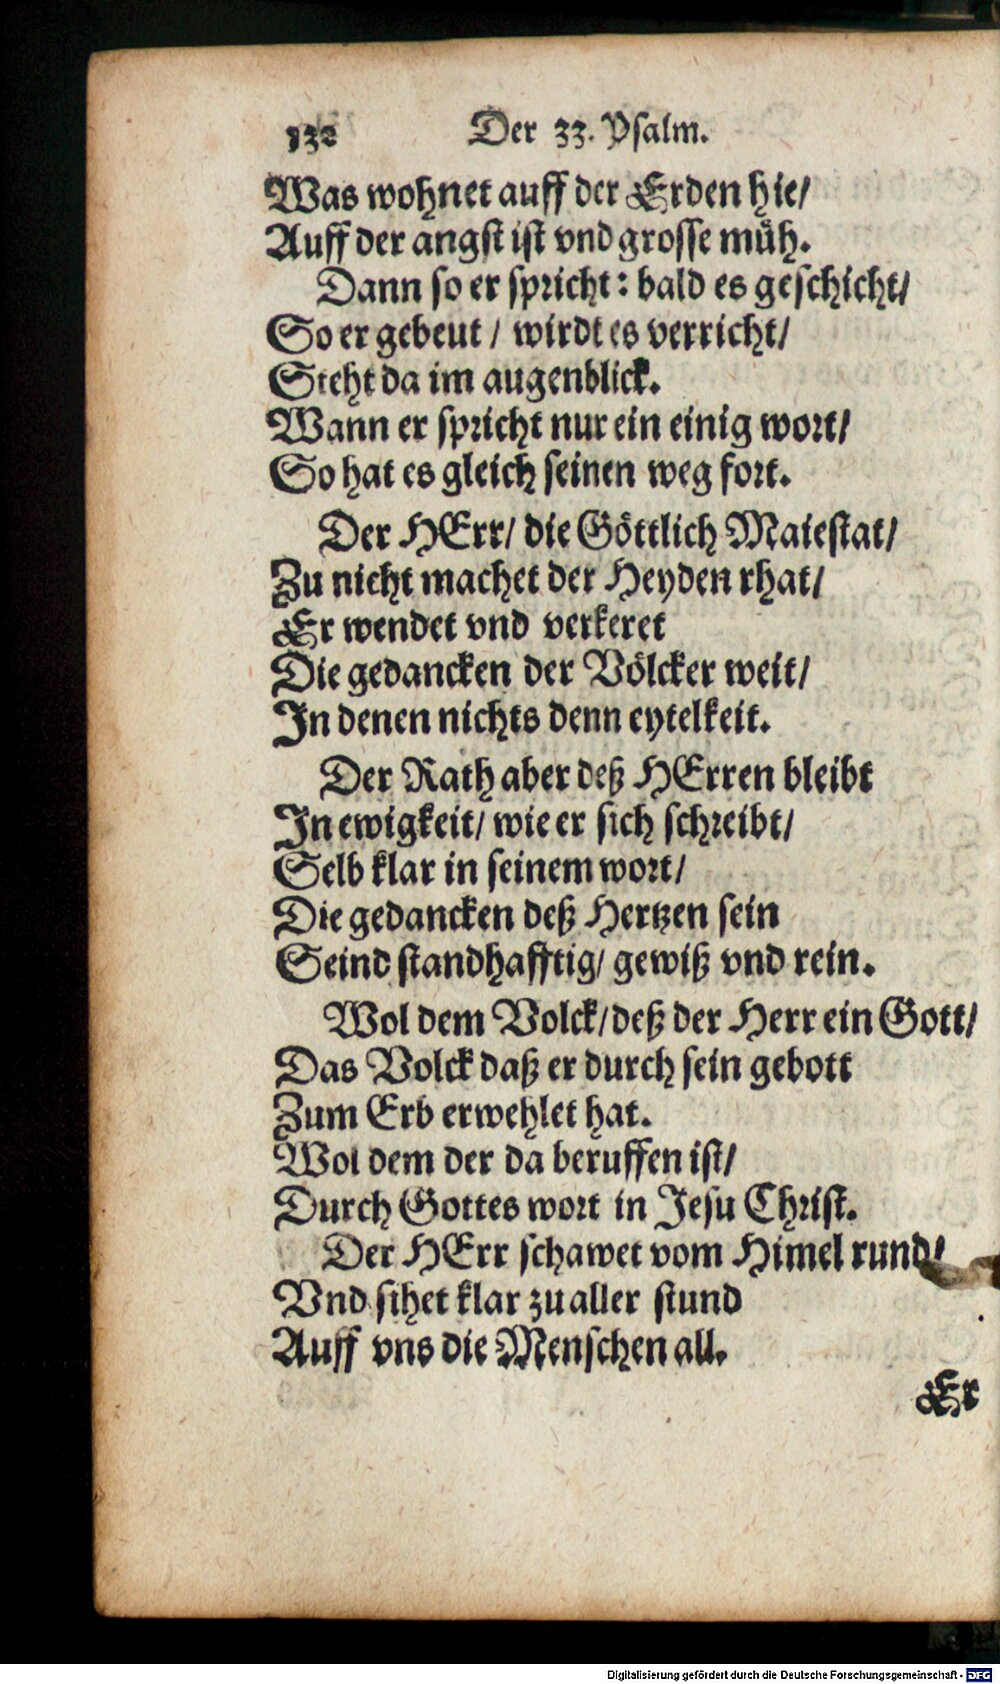 132 Der 33. Psalm.
Was wohnet auff der Erden hie/
Auff der angst ist vnd grosse müh.
Dann so er spricht: bald es geschicht/
So er gebeut / wirdt es verricht/
Steht da im augenblick.
Wann er spricht nur ein einig wort/
So hat es gleich seinen weg fort.
Der HErr/ die Göttlich Maiestat/
Zu nicht machet der Heyden rhat/
Er wendet vnd verkeret
Die gedancken der Völcker weit/
In denen nichts denn eytelkeit.
Der Rath aber deß HErren bleibt
In ewigkeit/ wie er sich schreibt/
Selb klar in seinem wort/
Die gedancken deß Hertzen sein
Seind standhafftig/ gewiß vnd rein.
Wol dem Volck/ deß der Herr ein Gott/
Das Volck daß er durch sein gebott
Zum Erb erwehlet hat.
Wol dem der da beruffen ist/
Durch Gottes wort in Jesu Christ.
Der HErr schawet vom Himel rund/
Vnd sihet klar zu aller stund
Auff vns die Menschen all.
Er
Digitalisierung gefördert durch die Deutsche Forschungsgemeinschaft - DFG